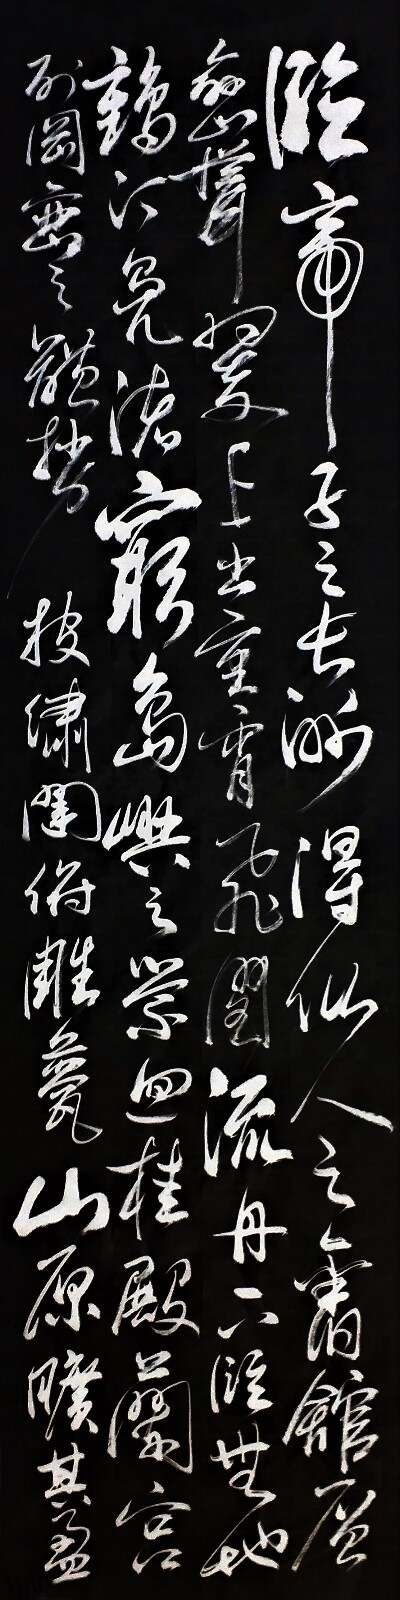 臨帝子之長洲得仙人之舊館層
巒聳翠上出重霄飛閣流丹下臨無地
鶴汀鳧渚窮島嶼之縈迴桂殿蘭宮
列岡巒之體勢披繡闥俯雕甍山原曠其盈